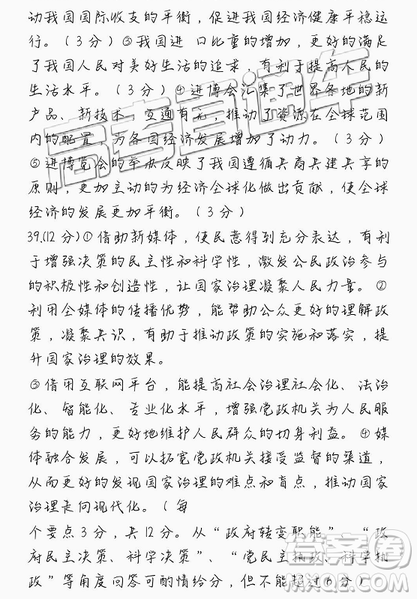 动我国国际收支的平衡，促进我国经济健康平稳运
行。（3 分）③我国进 口比重的增加，更好的满足
了我国人民对美好生活的追求，有利于提高人民的
生活水平。（3 分）④进博会汇集了世界各地的新
产品、新技术 ，互通有无，推动了资源在全球范围
内的配置，为各国经济发展增加了动力。（3 分）
⑤进博览会的举办反映了我国遵循共商共建共享的
原则，更加主动的为经济全球化做出贡献，使全球
经济的发展更加平衡。（3 分）
39.(12 分)①借助新媒体，使民意得到充分表达，有利
于增强决策的民主性和科学性，激发公民政治参与
的积极性和创造性，让国家治理凝聚人民力量。②
利用全媒体的传播优势，能帮助公众更好的理解政
策，凝聚共识，有助于推动政策的实施和落实，提
升国家治理的效果。
③借用互联网平台，能提高社会治理社会化、法治
化、智能化、专业化水平，增强党政机关为人民服
务的能力，更好地维护人民群众的切身利益。④媒
体融合发展，可以拓宽党政机关接受监督的渠道，
从而更好的发现国家治理的难点和盲点，推动国家
治理走向现代化。（每
个要点 3 分，共 12 分。从“政府转变职能”、“政
府民主决策、科学决策”、“党民主执政、科学执
政”等角度回答可酌情给分，但不能超过 6 分）
高考直通车
答案圈